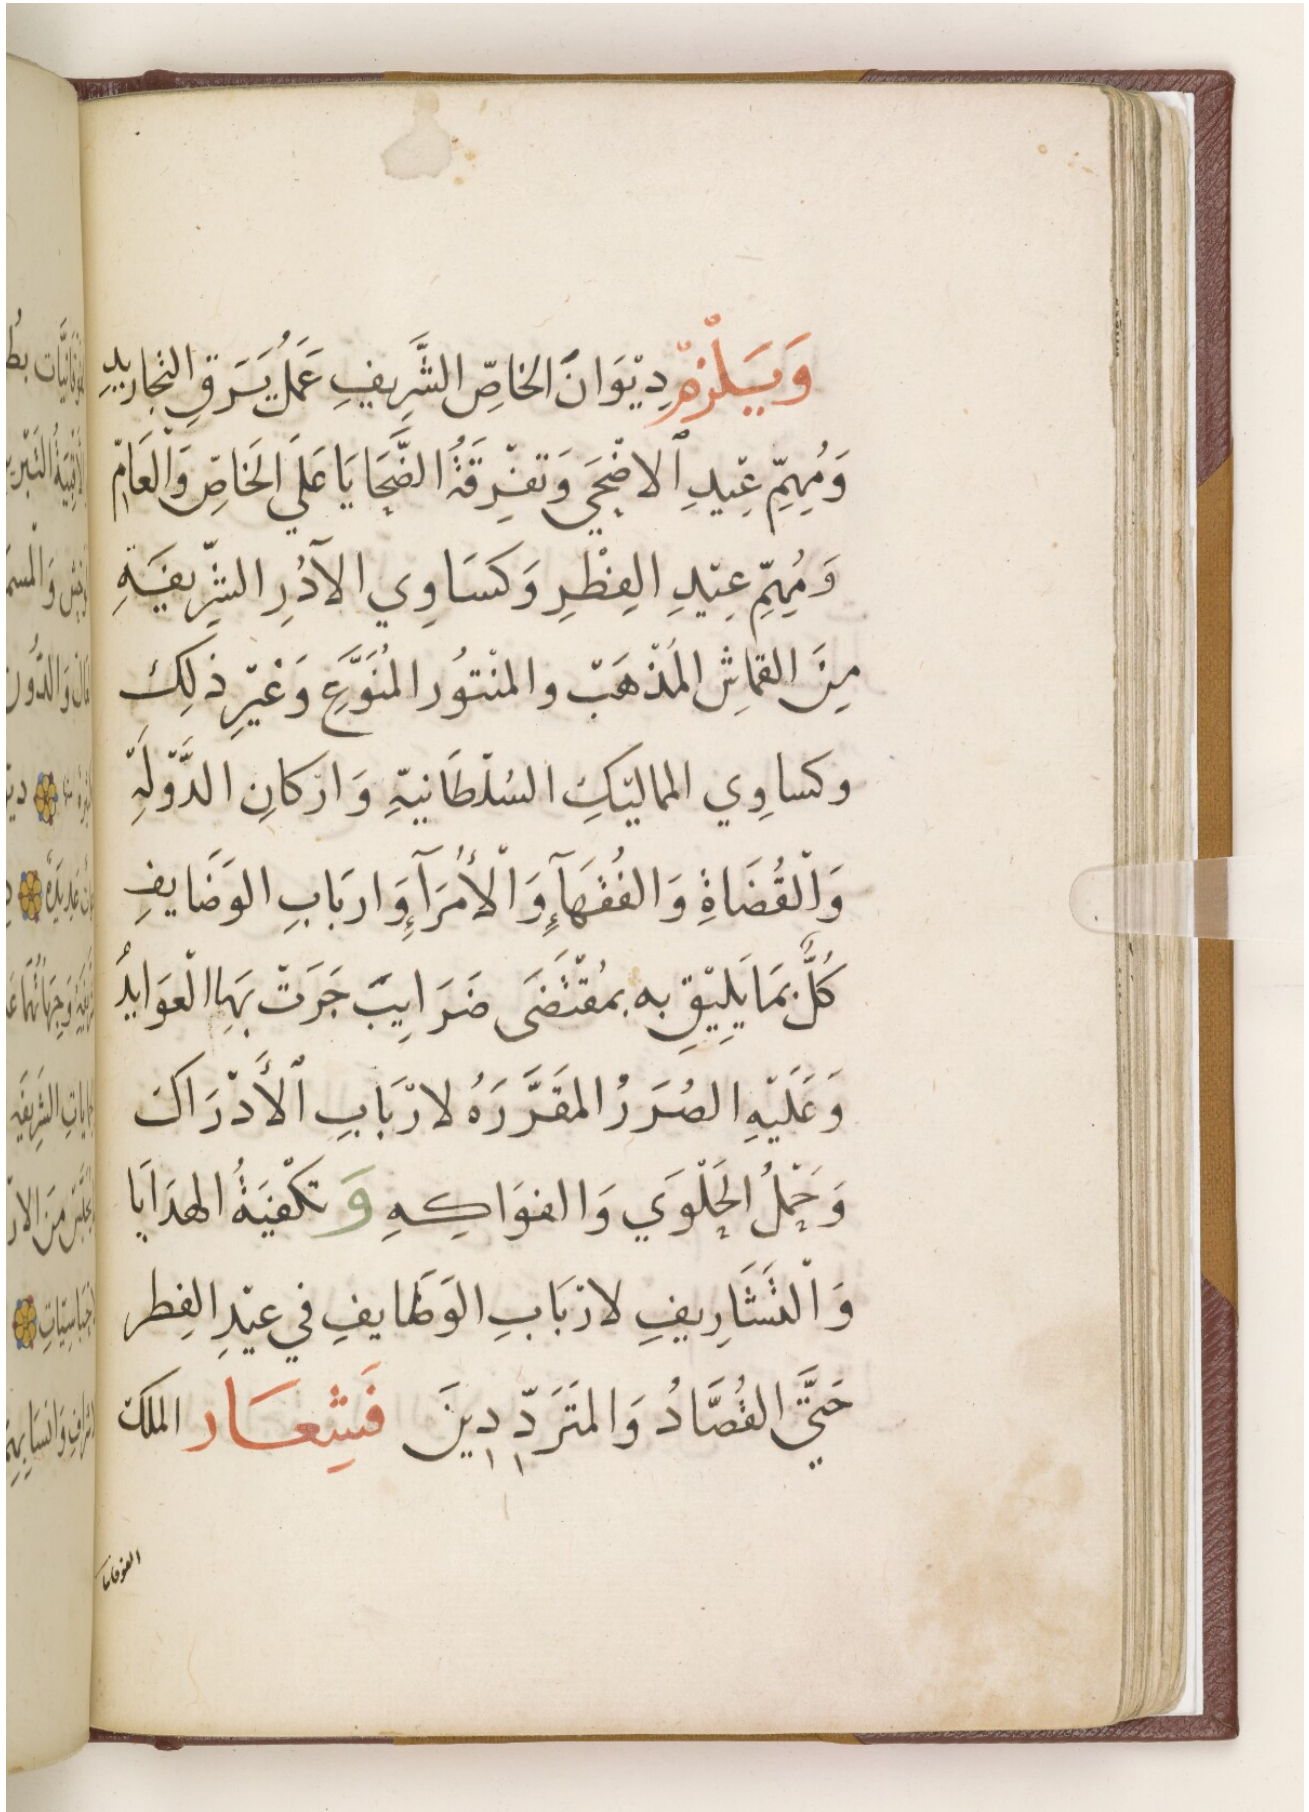 وَيَلْزَمْ دِيْوَانَ الخاصِّ الشَّرِيفِ عَمَلُ يَرَقِ التجاريدِ
وَمُهِمِّ عِيْدِ ٱلاضْحَي وَتفْرِقَةُ الضَّحَايَا عَلَي الخَاصِّ وَالْعَامِّ
وَمُهِمِّ عِيْدِ الفِطْرِ وَكسَاوِي الآدُرِ الشَّرِيفَةِ
مِنَ القماشِ المُذْهَبْ والمنْتوُر المُنَوَّعِ وَغَيْرِ ذلِكَ
وكساوِي المماليْكِ السُلْطَانيّةِ وَارْكانِ الدَّوْلَةِ
وَالْقُضَاةِ وَالفُقهَآءِ وَالْأُمَرَآءِ وَاربَابِ الوَضَايفِ
كُلٌّ بمَا يَلِيْقِ به بمُقْتَضَى ضَرَايِبَ جَرَتْ بَهِا الْعوَايِدُ
وَعَلَيْهِ الصُرَرُ المقَرَّرَهُ لارْبَابِ ٱلأَدْرَاكَ
وَحَمْلُ الحَلْوَي وَالفوَاكِهِ وَ تكْفيَةُ الهدَايَا
وَالْتَشَارِيفِ لارْبَابِ الوَظَايفِ في عيْدِ الفِطر
حَتَّيَ القُصَّادُ وَالمتَرَدِّدِينَ فَشِعَار الملك